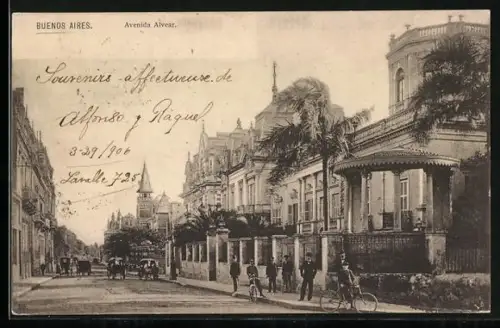 BUENOS AIRES.
Avenida Alvear.
Souvenirs affectueux de
Alfonso y Raquel
3-29/906
Lavalle 725